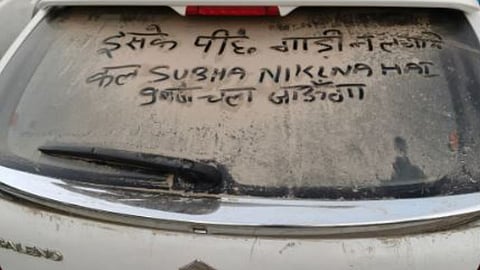 इसके पीछे गाड़ी न लगाये
कल SUBHA NIKLNA HAI
9 बजे चला जाऊँगा
BALENO